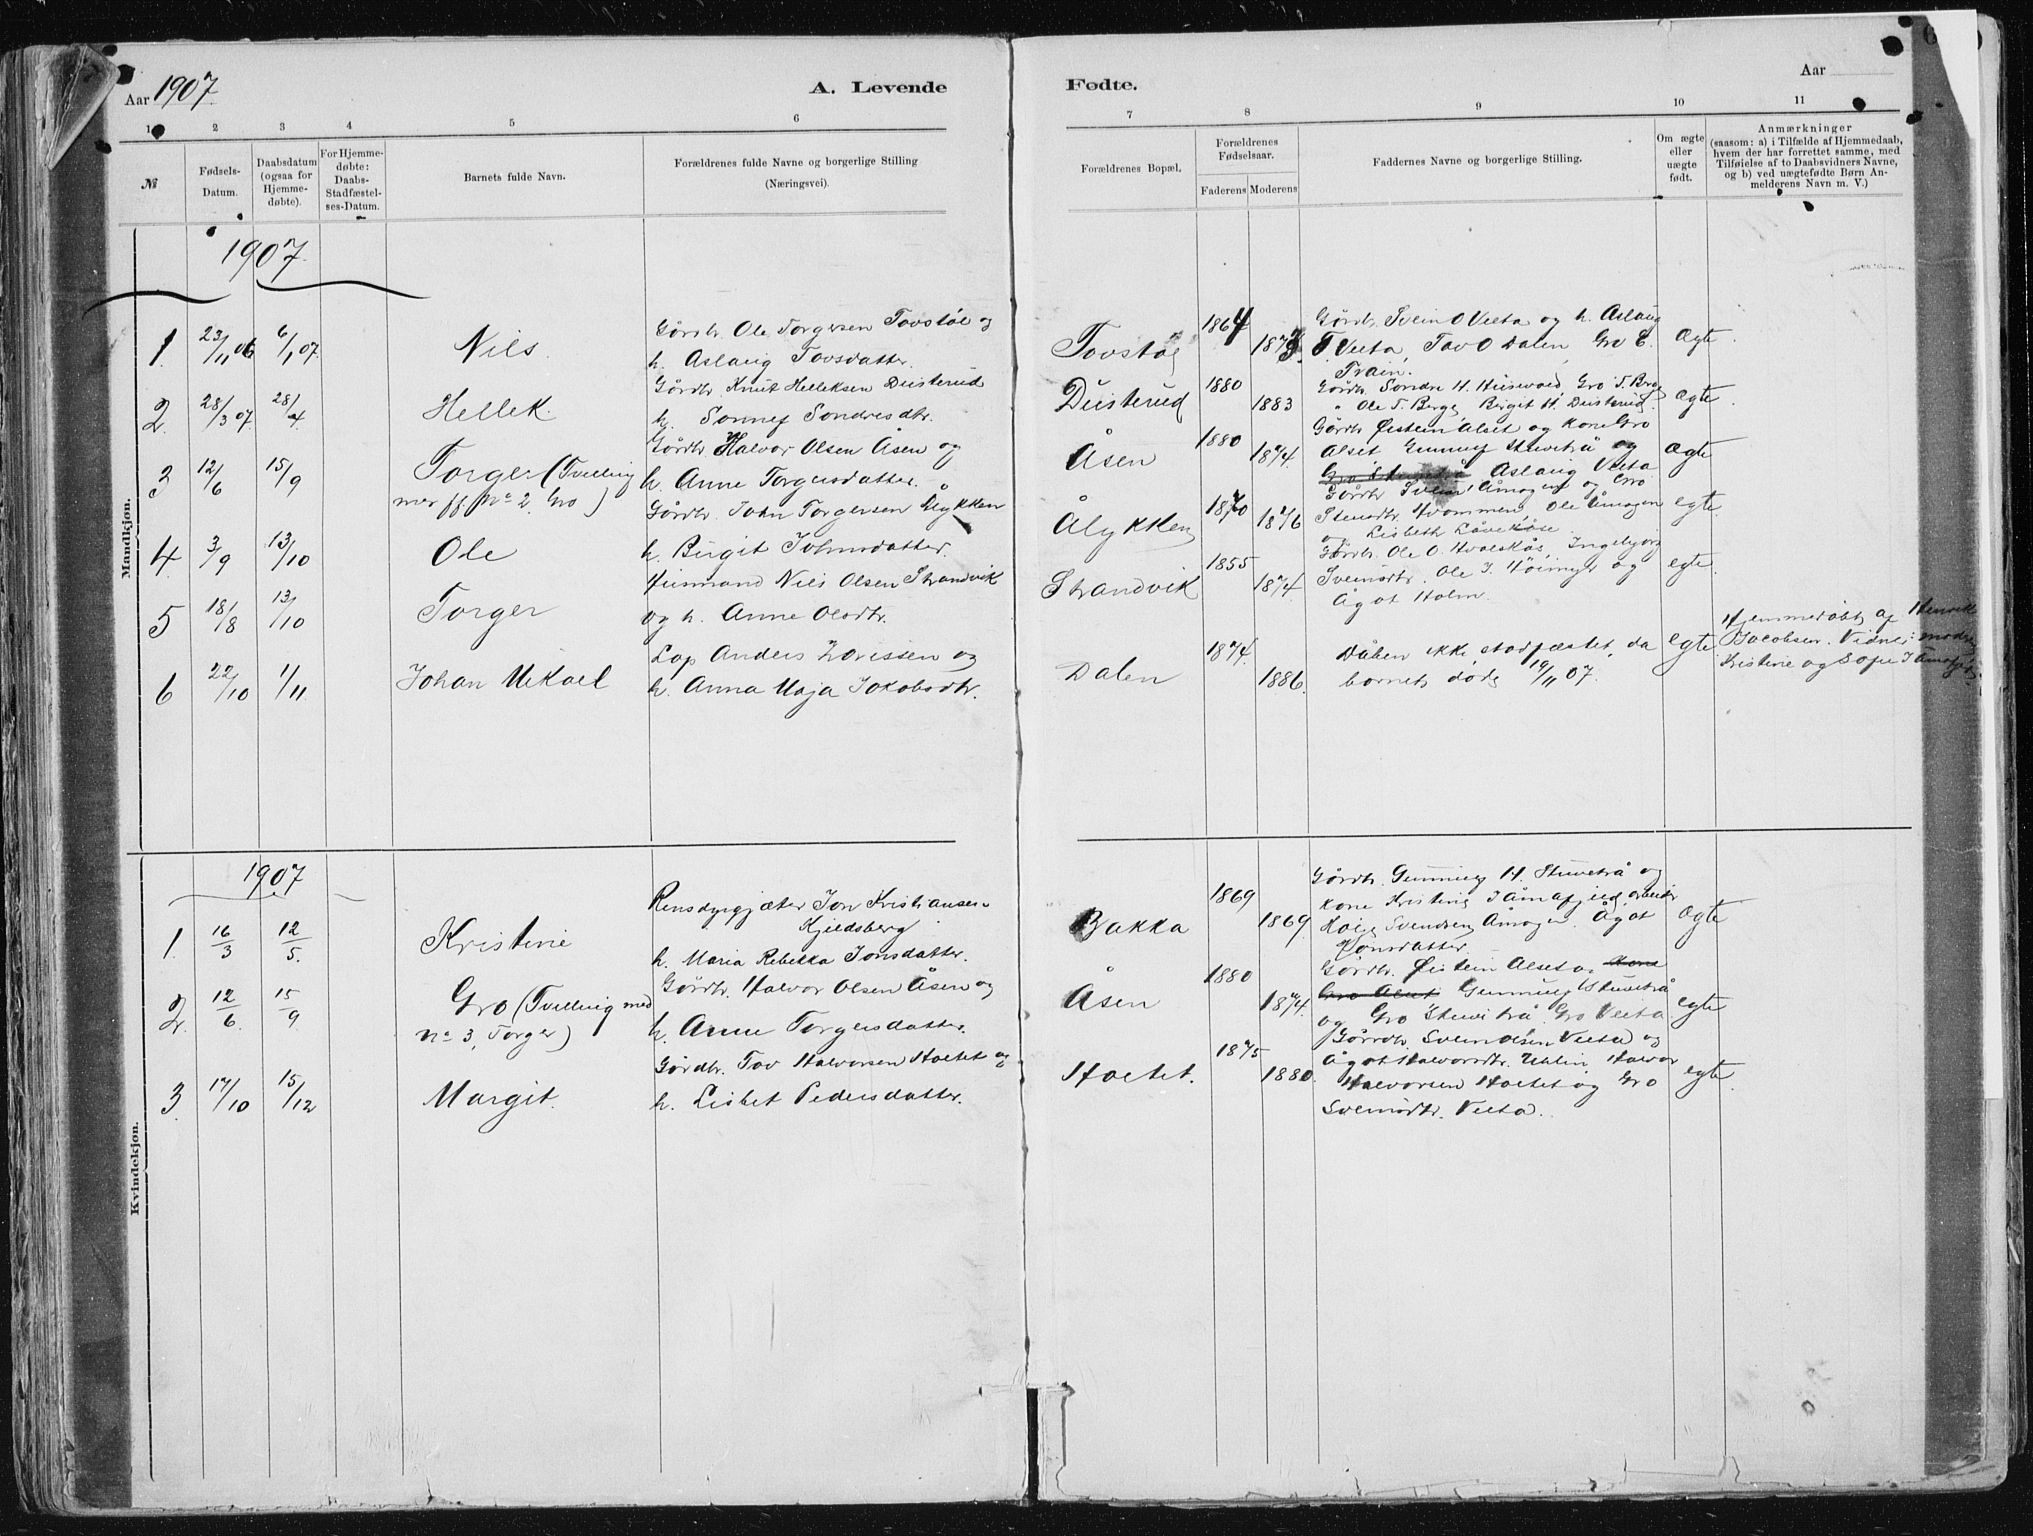 Aar 1907.
A. Levende
Fødte.
Aar
1 2 3 4 5 6
7 8 9 10 11
№
Fødsels-
Datum.
Daabsdatum
(ogsaa for
Hjemme-
døbte).
For Hjemme-
døbte:
Daabs-
Stadfæstel-
ses-Datum.
Barnets fulde Navn.
Forældrenes fulde Navne og borgerlige Stilling
(Næringsvei).
Forældrenes Bopæl.
Forældrenes
Fødselsaar.
Faderens Moderens
Faddernes Navne og borgerlige Stilling.
Om ægte
eller
uægte
født.
Anmærkninger
(saasom: a) i Tilfælde af Hjemmedaab,
hvem der har forrettet samme, med
Tilføielse af to Daabsvidners Navne,
og b) ved uægtefødte Børn An-
melderens Navn m. V.)
Mandkjøn.
1907.
1. 23/11 06 6/1 07. Nils.
Gårdbr. Ole Torgersen Tovstøl og
h. Aslaug Tovsdatter.
Tovstøl 1864
Gårdbr. Svein O Veeta og h. Aslaug
T. Veeta, Tov O Dalen, Gro E.
Train.
Ægte.
2. 28/3 07 28/4 Hellek.
Gårdbr. Knut Helleksen Deisterud
h. Sonnef Sondresdtr.
Deisterud 1880 1883
Gårdbr. Sondre H. Gro T. Berge
" Ole T. Berge, Birgit H. Deisterud.
Ægte.
3 12/6 15/9 Torger (Tvilling
med pg. No 2, Gro)
Gårdbr. Halvor Olsen Åsen og
h. Anne Torgersdatter.
Åsen 1880 1874.
Gårdbr. Øistein Alset og Kone Gro
Alset Gunnuf Stuvetrå og
Aslaug Veeta
Ægte
4 3/9 13/10 Ole
Gårdbr. John Torgersen Ålykken
h. Birgit Johnsdatter.
Ålykken 1870 1876
Gårdbr. Svein Åmogen og Gro
Steindtr. Hvammen, Ole Åmogen
og Lisbeth
egte.
5 18/8 13/10 Torger
Husmand Nils Olsen Strandvik
og h. Anne Olsdtr.
Strandvik 1855 1874.
Gårdbr. Ole O. Hvalskås, Ingebjørg
Sveinsdtr. Ole J. Høimyr og
Ågot Holm.
egte.
6 22/10 1/11. Johan Mikael
Lap Anders Larissen og
h. Anna Maja Jakobsdtr.
Dalen 1874. 1886.
Dåben ikke stadfæstet, da
barnet døde 19/11 07.
egte
Hjemmedøbt af Henrik
Jacobsen. Vidner:
Kristine og Sofie J Åmotfjeld.
Kvindekjøn.
1907
1. 16/3 12/5. Kristine
Rensdyrgjæter Jon Kristiansen
Kjeldsberg
h. Maria Rebekka Jonsdatter.
Bakka 1869 1869
Gårdbr. Gunnuf H. Stuvetrå og
Kone Kristine J Åmotfjeld, arbeider
Svendsen Åmogen. Ågot
Jonsdatter.
Ægte
2. 12/6. 15/9. Gro (Tvilling med
No 3, Torger)
Gårdbr. Halvor Olsen Åsen og
h. Anne Torgersdatter.
Åsen 1880 1874.
Gårdbr. Øistein Alset og Kone
Gro Alset Gunnuf Stuvetrå
og Gro Stuvetrå. Gro Veeta.
egte
3. 17/10 15/12 Margit.
Gårdbr. Tov Halvorsen Haatet og
h. Lisbet Pedersdatter.
Haatet. 1875 1880.
Gårdbr. Svein Olsen Veeta og
Ågot Halvorsdtr. Halvor
Halvorsen Haatet og Gro
Sveinsdtr. Veeta.
egte.